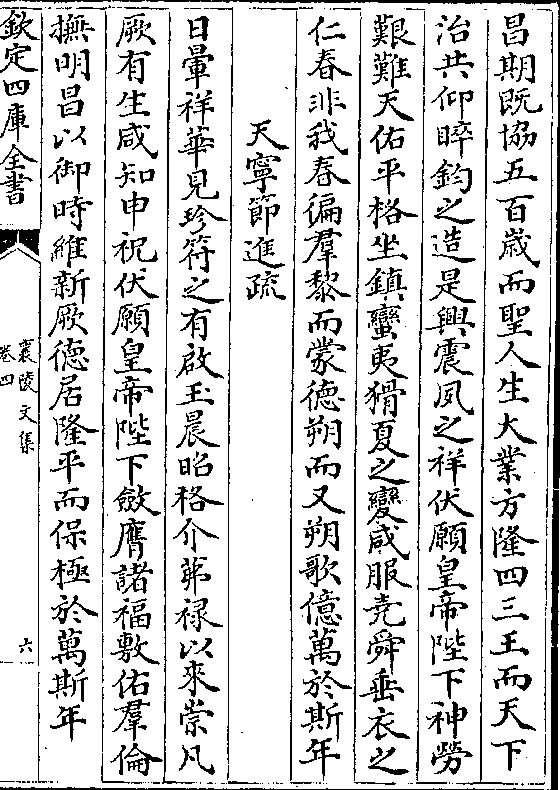 昌期既協五百嵗而聖人生大業方隆四三王而天下
治共仰睟鈞之造是興震夙之祥伏願皇帝陛下神勞
艱難天佑平格坐鎮蠻夷猾夏之變咸服堯舜垂衣之
仁春非我春徧羣黎而蒙德朔而又朔歌億萬於斯年
天寧節進疏
日暈祥華見珍符之有啟玉晨昭格介茀禄以來崇凡
厥有生咸知申祝伏願皇帝陛下斂膺諸福敷佑羣倫
撫明昌以御時維新厥德居隆平而保極於萬斯年
欽定四庫全書
襄陵文集
卷四
六